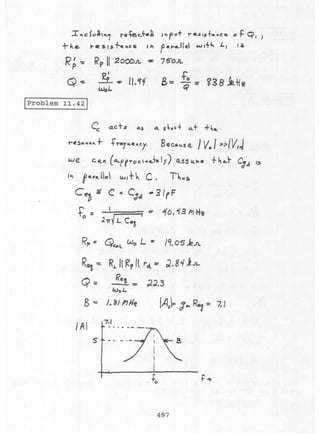 Including reflected input resistance of Q₁,
the resistance in parallel with L₁ is
R'ₚ = Rₚ ‖ 2000Ω = 750Ω
Q = R'ₚ / ω₀L = 11.94 B = f₀ / Q = 838 kHz
Problem 11.42
C_C acts as a short at the
resonant frequency. Because |V₀| >> |Vᵢₙ|
we can (approximately) assume that C_gd is
in parallel with C. Thus
C_eq ≅ C + C_gd = 31pF
f₀ = 1 / 2π√(L C_eq) = 40.43 MHz
Rₚ = Q_coil ω₀ L = 19.05 kΩ
R_eq = R_L ‖ Rₚ ‖ r_d = 2.84 kΩ
Q = R_eq / ω₀L = 22.3
B = 1.81 MHz |A₀| = gₘ R_eq = 7.1
|A|
7.1
5
B
f₀
f →
497